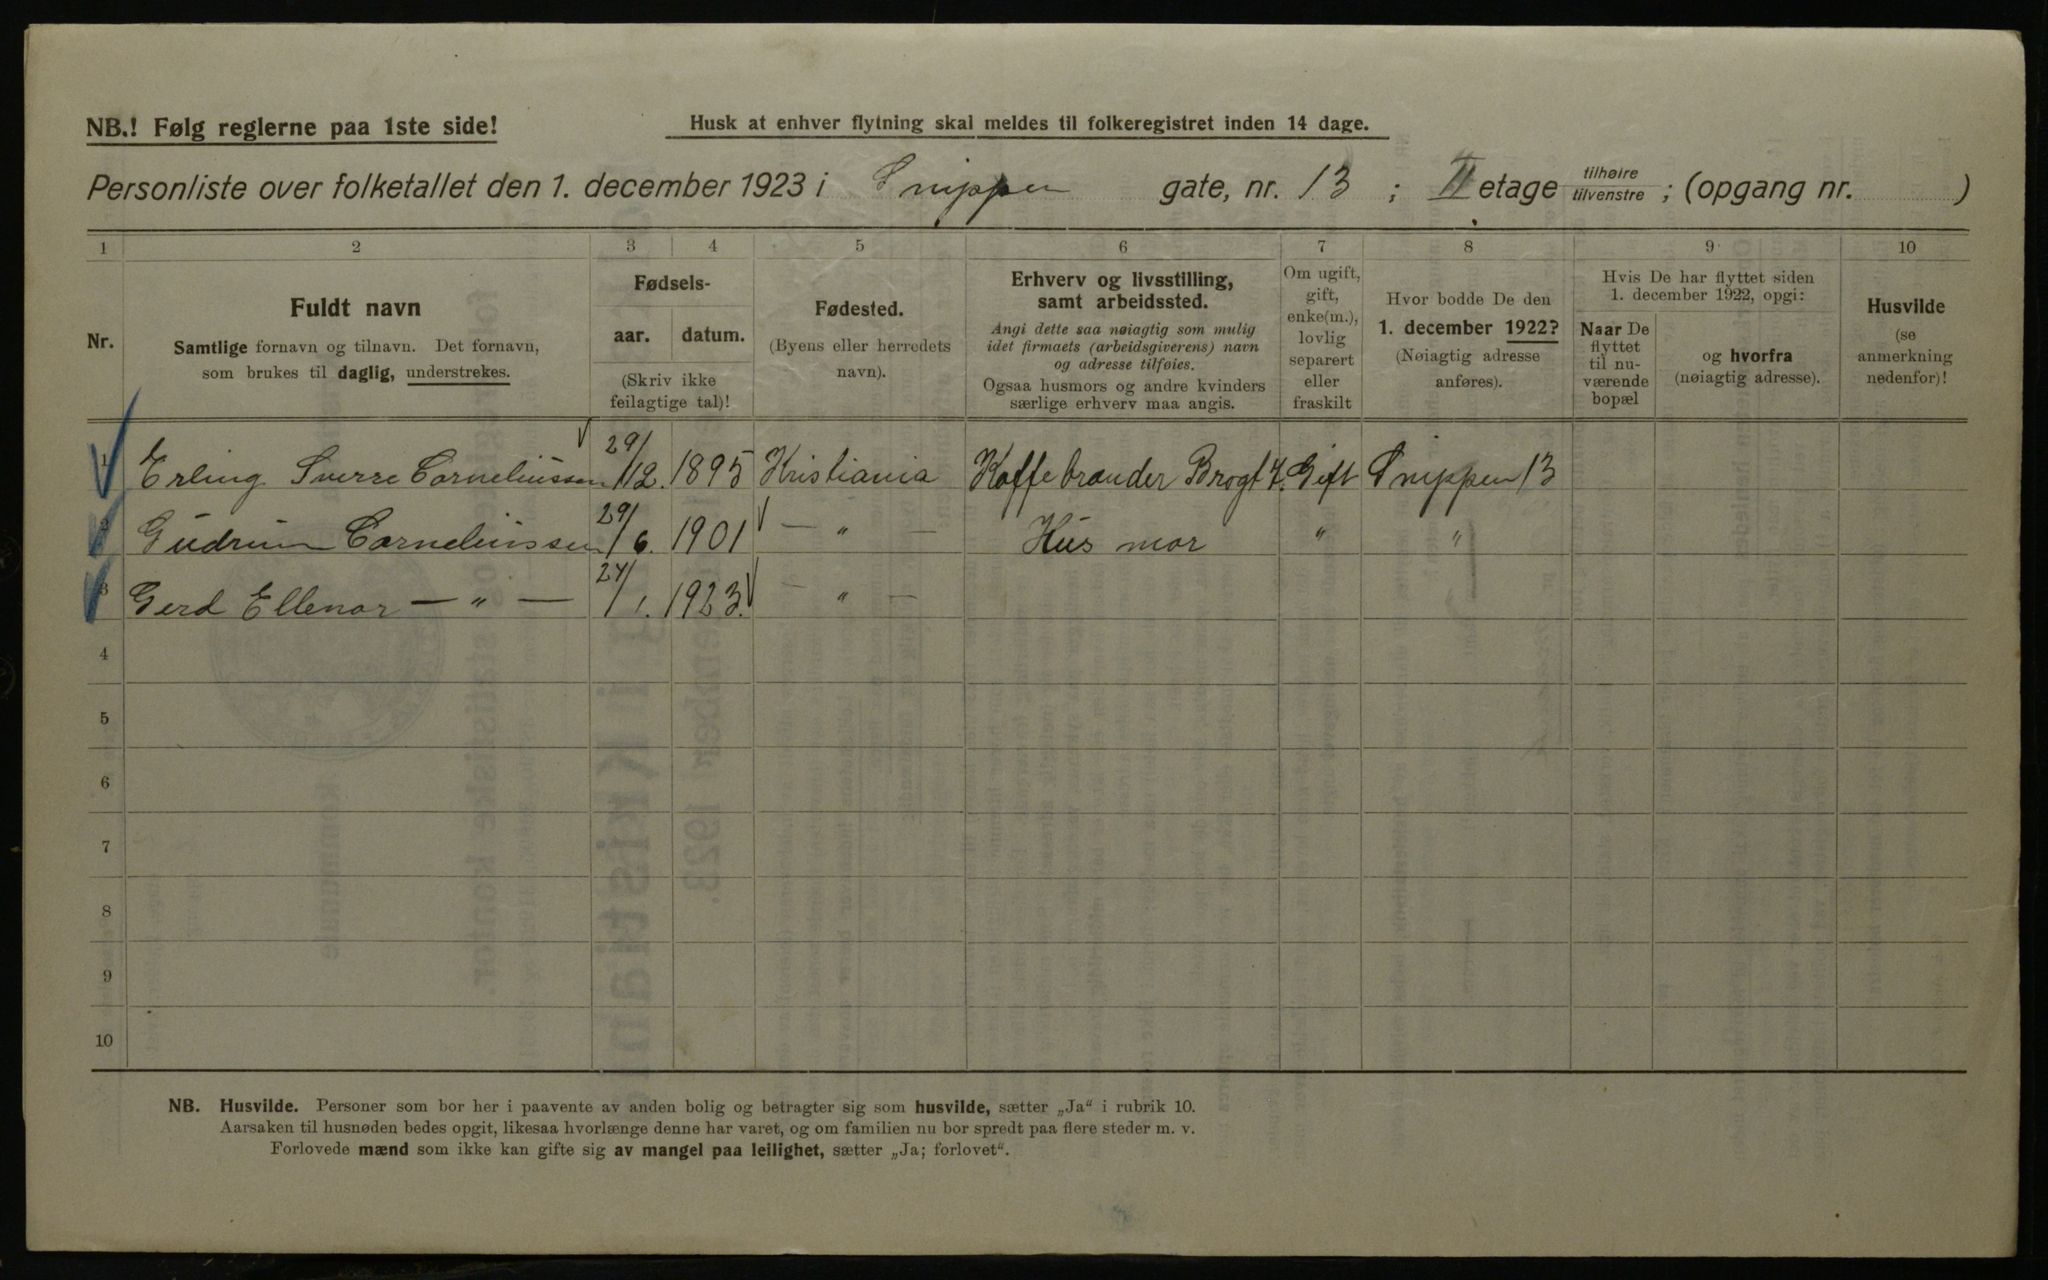 NB.! Følg reglerne paa 1ste side!
Husk at enhver flytning skal meldes til folkeregistret inden 14 dage.
Personliste over folketallet den 1. december 1923 i Snippen gate, nr. 13 ; II etage tilhøire tilvenstre ; (opgang nr. )
1 2 3 4 5 6 7 8 9 10
Nr.
Fuldt navn
Samtlige fornavn og tilnavn. Det fornavn,
som brukes til daglig, understrekes.
Fødsels-
aar. datum.
(Skriv ikke
feilagtige tal)!
Fødested.
(Byens eller herredets
navn).
Erhverv og livsstilling,
samt arbeidssted.
Angi dette saa nøiagtig som mulig
idet firmaets (arbeidsgiverens) navn
og adresse tilføies.
Ogsaa husmors og andre kvinders
særlige erhverv maa angis.
Om ugift,
gift,
enke(m.),
lovlig
separert
eller
fraskilt
Hvor bodde De den
1. december 1922?
(Nøiagtig adresse
anføres).
Hvis De har flyttet siden
1. december 1922, opgi:
Naar De
flyttet
til nu-
værende
bopæl
og hvorfra
(nøiagtig adresse).
Husvilde
(se
anmerkning
nedenfor)!
1 Erling Sverre Corneliussen 29/12. 1895 Kristiania Kaffebrænder Brogt 7. Gift Snippen 13
2 Gudrun Corneliussen 29/6. 1901 — „ — Hus mor „ „
3 Gerd Ellenor — „ — 24/1. 1923. — „ —
4
5
6
7
8
9
10
NB. Husvilde. Personer som bor her i paavente av anden bolig og betragter sig som husvilde, sætter „Ja“ i rubrik 10.
Aarsaken til husnøden bedes opgit, likesaa hvorlænge denne har varet, og om familien nu bor spredt paa flere steder m. v.
Forlovede mænd som ikke kan gifte sig av mangel paa leilighet, sætter „Ja; forlovet“.